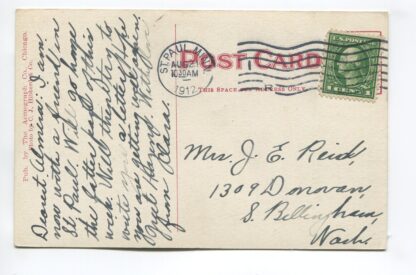 Pub. by The Acmegraph Co., Chicago.
Dearest Almeda: I am
now with a friend in
St. Paul. Will go home
the latter part of this
week. Will then try to
write you a letter. Hope
you are getting well again.
from Clara.
ST. PAUL, MINN.
AUG
10 30 AM
1912
POST CARD
THIS SPACE FOR ADDRESS ONLY.
U.S. POSTAGE
1 CENT 1
Mrs. J. E. Reid,
1309 Donovan,
S. Bellingham,
Wash.